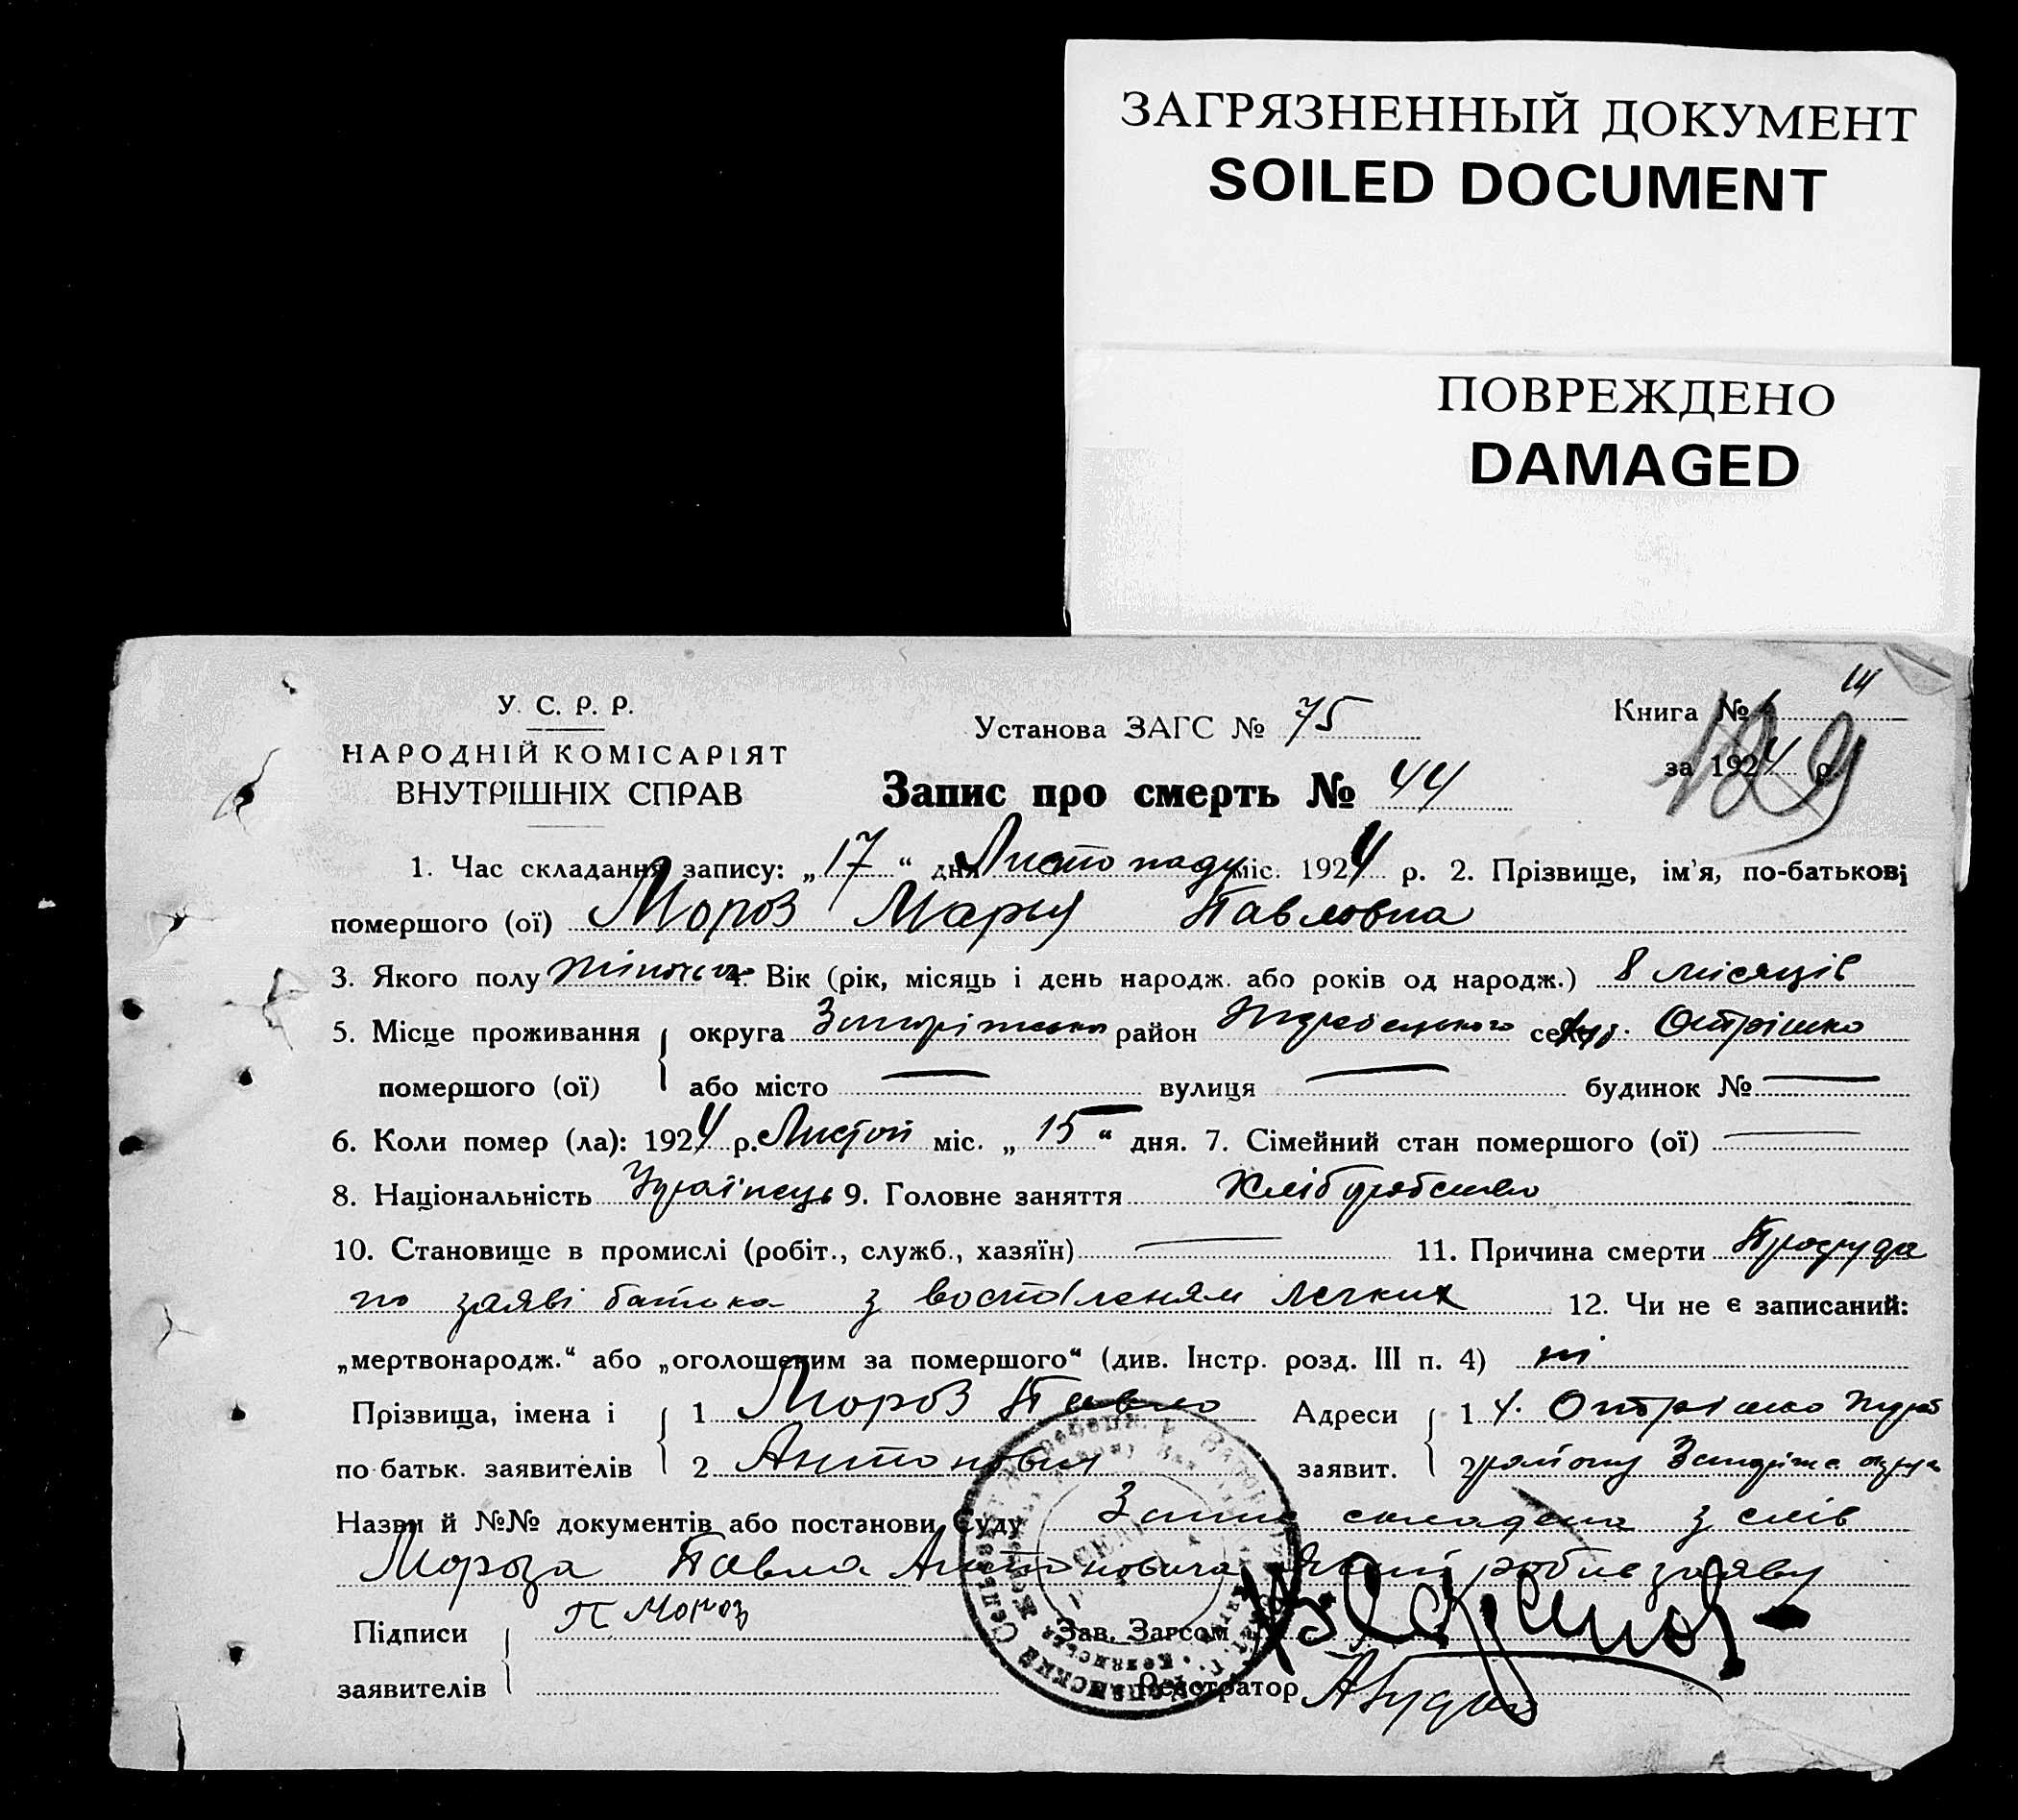 ЗАГРЯЗНЕННЫЙ ДОКУМЕНТ
SOILED DOCUMENT
ПОВРЕЖДЕНО
DAMAGED
14
У. С. Р. Р.
НАРОДНІЙ КОМІСАРІЯТ
ВНУТРІШНІХ СПРАВ
Установа ЗАГС № 75
Книга №
за 1924 р.
129
Запис про смерть № 44
1. Час складання запису: „17“ дня Листопаду міс. 1924 р. 2. Прізвище, ім'я, по-батькові
помершого (ої) Мороз Марья Павловна
3. Якого полу жіноча 4. Вік (рік, місяць і день народж. або років од народж.) 8 місяців
5. Місце проживання округа район село
помершого (ої) або місто — вулиця — будинок № —
6. Коли помер (ла): 1924 р. Листоп міс. „15“ дня. 7. Сімейний стан помершого (ої) —
8. Національність Українець 9. Головне заняття Хліборобство
10. Становище в промислі (робіт., служб., хазяїн) — 11. Причина смерти Простуда
по заяві батька з воспаленям легких 12. Чи не є записаний:
„мертвонародж.“ або „оголошеним за помершого“ (див. Інстр. розд. III п. 4) ні
Прізвища, імена і 1 Мороз Павло Адреси 1
по батьк. заявителів 2 Антонович заявит. 2 району
Назви й №№ документів або постанови Суду Запис складено з слів
Мороза Павла Антоновича який робив заяву
Підписи П Мороз Зав. Загсом
заявителів Реєстратор